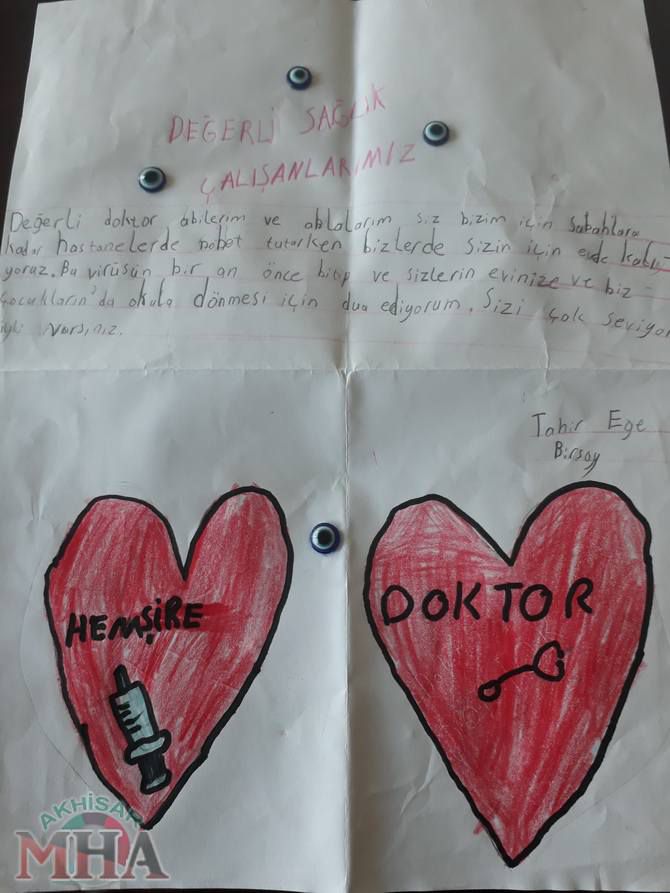 DEĞERLİ SAĞLIK
ÇALIŞANLARIMIZ
Değerli doktor abilerim ve ablalarım siz bizim için sabahlara
kadar hastanelerde nöbet tutarken bizlerde sizin için evde kalı-
yoruz. Bu virüsün bir an önce bitip ve sizlerin evinize ve biz
çocukların'da okula dönmesi için dua ediyorum. Sizi çok seviyor
iyki varsınız.
Tahir Ege
Birsoy
HEMŞİRE
DOKTOR
AKHİSAR
MHA